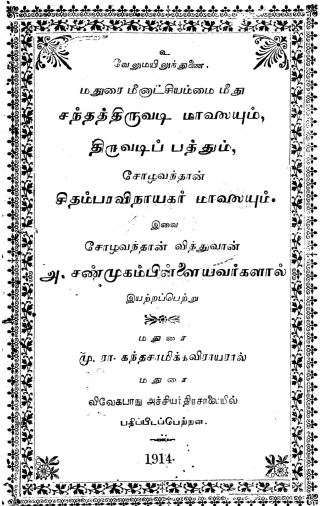 உ
வேலுமயிலுந்துணை.
மதுரை மீனாட்சியம்மை மீது
சந்தத்திருவடி மாலையும்,
திருவடிப் பத்தும்,
சோழவந்தான்
சிதம்பரவிநாயகர் மாலையும்.
இவை
சோழவந்தான் வித்துவான்
அ. சண்முகம்பிள்ளையவர்களால்
இயற்றப்பெற்று
மதுரை
மு. ரா. கந்தசாமிக்கவிராயரால்
மதுரை
விவேகபாநு அச்சியந்திரசாலையில்
பதிப்பிடப்பெற்றன.
1914.